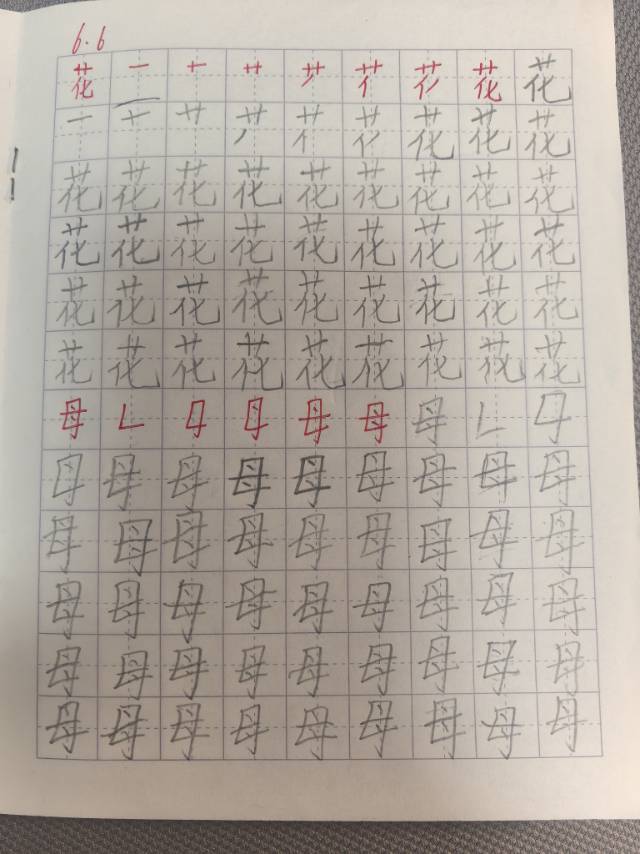 6.6
花 一 十 艹 花 花
一 十 艹 花 花 花
花 花 花 花 花 花 花 花 花
花 花 花 花 花 花 花 花 花
花 花 花 花 花 花 花 花 花
花 花 花 花 花 花 花 花 花
母 𠃊 母 母 𠃊
母 母 母 母 母 母 母 母
母 母 母 母 母 母 母 母 母
母 母 母 母 母 母 母 母 母
母 母 母 母 母 母 母 母 母
母 母 母 母 母 母 母 母 母